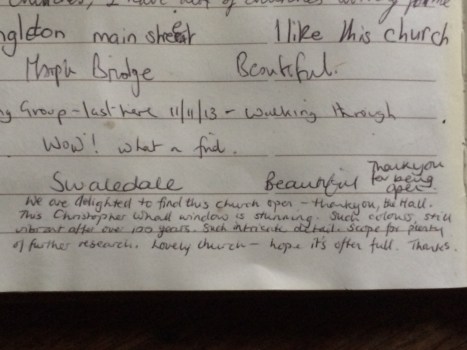 I have
ngleton main street I like this church
Bridge Beautiful.
g Group - last here 11/11/13 - walking through
Wow! what a find.
Swaledale Beautiful Thankyou
for being
open.
We are delighted to find this church open - thankyou,
This Christopher Whall window is stunning. Such colours, still
vibrant after over 100 years. Such intricate detail. Scope for plenty
of further research. Lovely church - hope it's often full. Thanks.